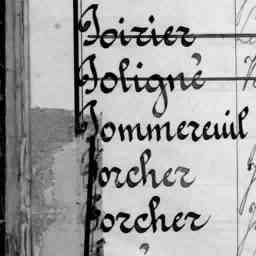 Poirier
Poligné
Pommereuil
Porcher
Porcher